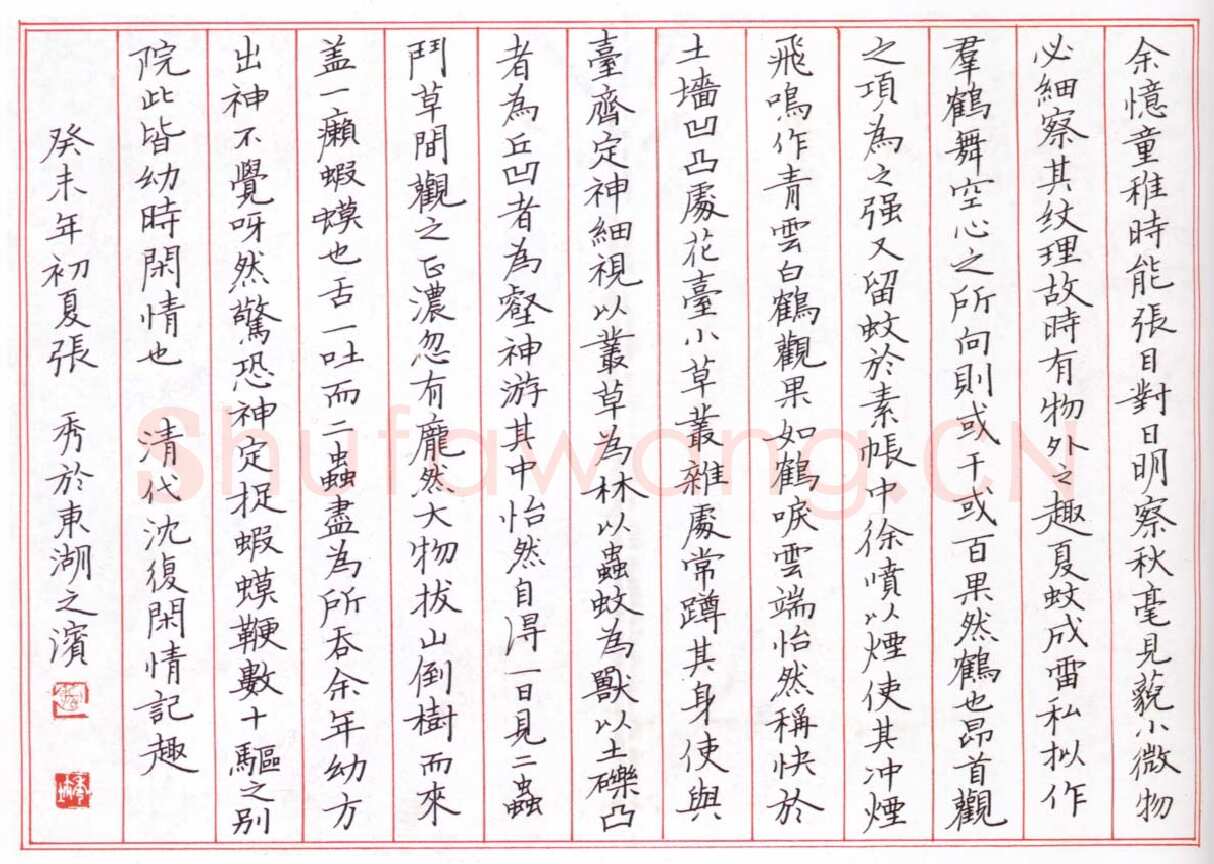 余憶童稚時能張目對日明察秋毫見藐小微物
必細察其纹理故時有物外之趣夏蚊成雷私拟作
羣鶴舞空心之所向則或千或百果然鶴也昂首觀
之項為之强又留蚊於素帳中徐噴以煙使其冲煙
飛鳴作青雲白鶴觀果如鶴唳雲端怡然稱快於
土墻凹凸處花臺小草叢雜處常蹲其身使與
臺齊定神細視以叢草為林以蟲蚊為獸以土礫凸
者為丘凹者為壑神游其中怡然自得一日見二蟲
鬥草間觀之正濃忽有龐然大物拔山倒樹而來
盖一癩蝦蟆也舌一吐而二蟲盡為所吞余年幼方
出神不覺呀然驚恐神定捉蝦蟆鞭數十驅之别
院此皆幼時閑情也 清代沈復閑情記趣
癸未年初夏張 秀於東湖之濱
Shufawang.CN